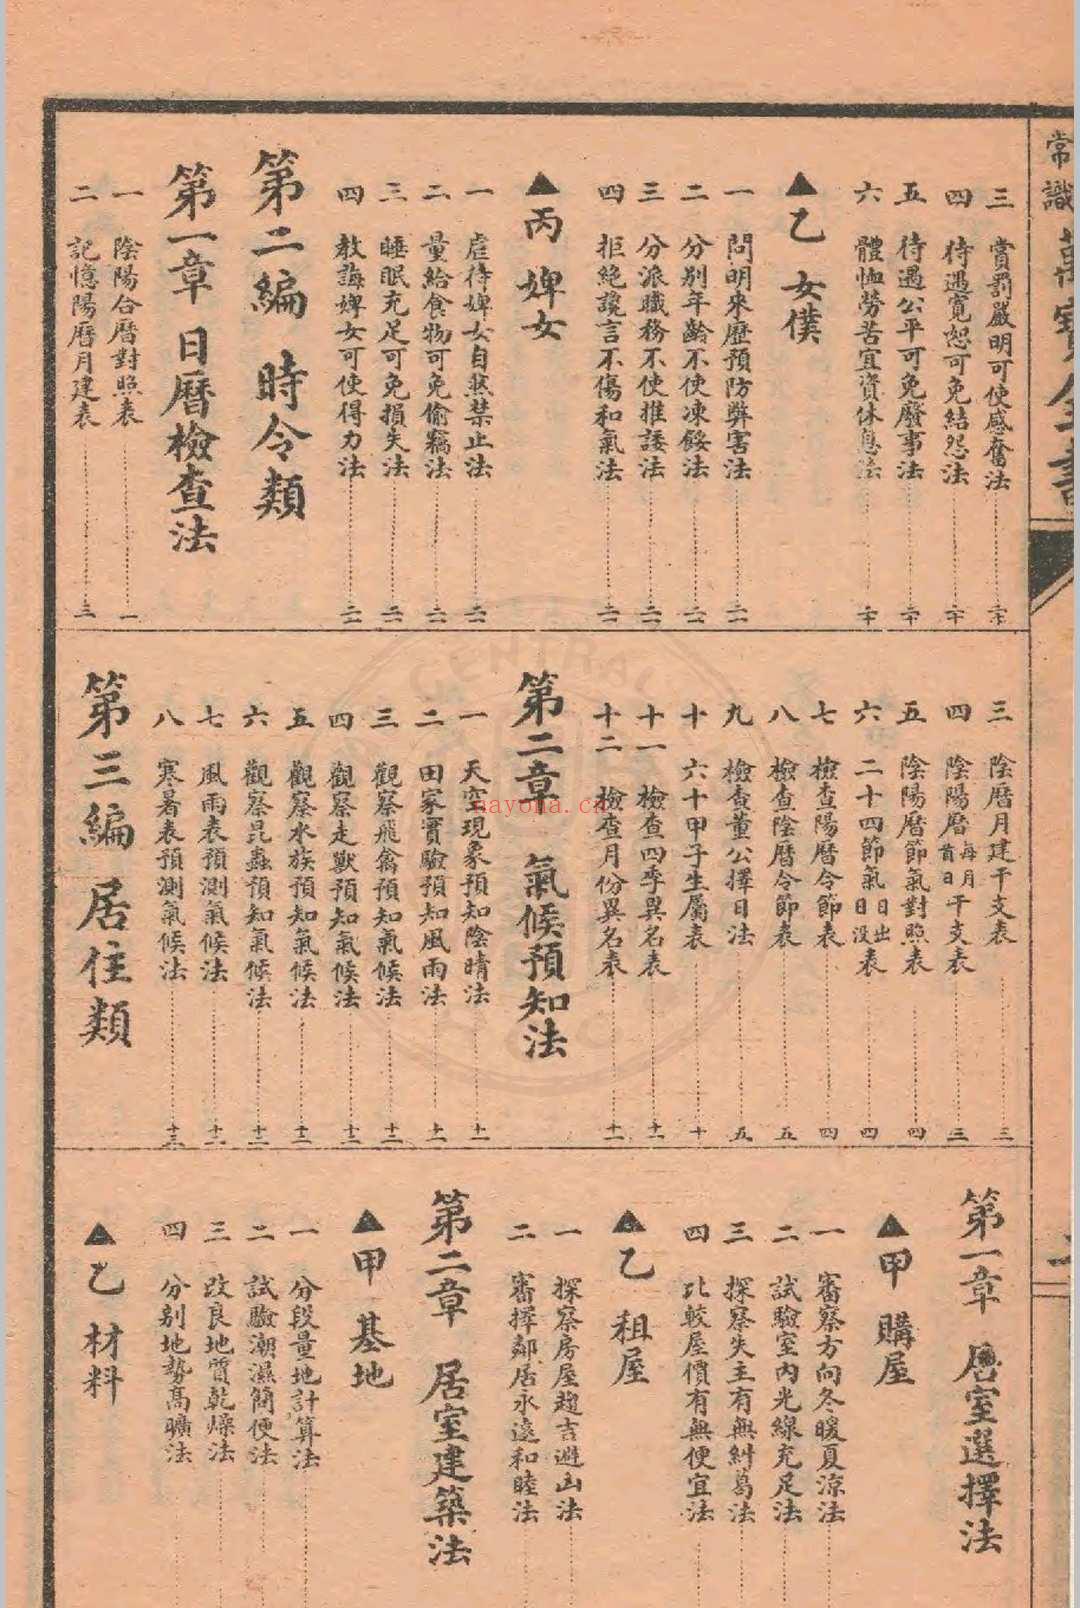 常識
萬寶全書
三 賞罰嚴明可使感奮法 二十
四 待遇寬恕可免結怨法 二十
五 待遇公平可免廢事法 二十
六 體恤勞苦宜資休息法 二十
▲乙 女僕
一 問明來歷預防弊害法 二一
二 分別年齡不使凍餒法 二一
三 分派職務不使推諉法 二一
四 拒絶讒言不傷和氣法 二一
▲丙 婢女
一 虐待婢女自然禁止法
二 量給食物可免偷竊法
三 睡眠充足可免損失法
四 教誨婢女可使得力法
第二編 時令類
第一章 日曆檢查法
一 陰陽合曆對照表 一
二 記憶陽曆月建表 三
三 陰曆月建干支表 三
四 陰陽曆每月首日干支表 三
五 陰陽曆節氣對照表 四
六 二十四節氣日出日没表 四
七 檢查陽曆令節表 四
八 檢查陰曆令節表 五
九 檢查董公擇日法 五
十 六十甲子生屬表 十
十一 檢查四季異名表 十一
十二 檢查月份異名表 十一
第二章 氣候預知法
一 天空現象預知陰晴法 十一
二 田家實驗預知風雨法 十一
三 觀察飛禽預知氣候法 十二
四 觀察走獸預知氣候法 十二
五 觀察水族預知氣候法 十二
六 觀察昆蟲預知氣候法 十二
七 風雨表預測氣候法 十二
八 寒暑表預測氣候法 十三
第三編 居住類
第一章 居室選擇法
▲甲 購屋
一 審察方向冬暖夏涼法
二 試驗室內光線充足法
三 探察失主有無糾葛法
四 比較屋價有無便宜法
▲乙 租屋
一 探察房屋趨吉避凶法
二 審擇鄰居永遠和睦法
第二章 居室建築法
▲甲 基地
一 分段量地計算法
二 試驗潮濕簡便法
三 改良地質乾燥法
四 分別地勢高曠法
▲乙 材料
CENTRAL
nayona.cn